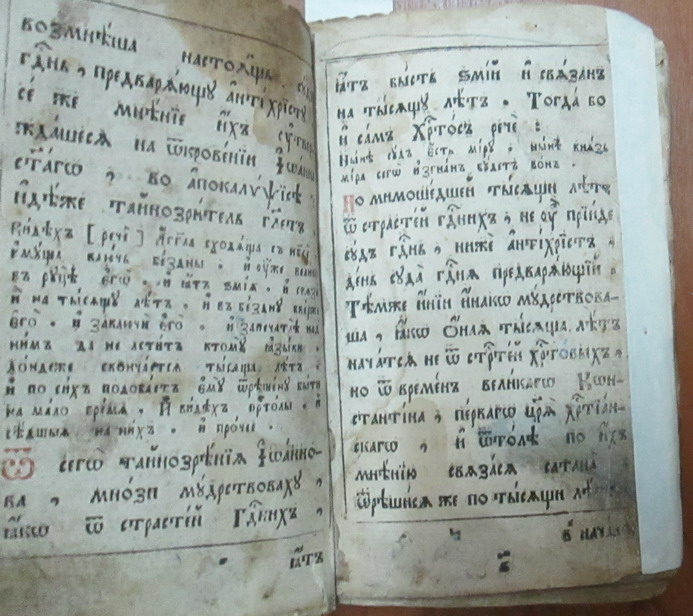 возмнѣша настоѧщь
гд҃нь , предварѧющꙋ а҆нтїхрїстꙋ
се́ же мнѣнїе и҆́хъ
ждашесѧ на ѿкрове́нїи І҆ѡа́нна
ст҃а́гѡ , во а҆покалѵ́ѱїсѣ
и҆дѣ́же тайнозри́тель гл҃етъ
Ви́дѣхъ [ речѐ ] А҆́гг҃ла сходѧ́ща съ
и҆мꙋ́ща ключь бе́здны . и҆ ꙋ҆́же
въ рꙋцѣ̀ є҆гѡ̀ . и҆ ꙗ҆́тъ ѕмі́ѧ . и҆ свѧза̀
и҆̀ на ты́сѧщꙋ лѣ́тъ . и҆ въ бе́зднꙋ вве́рже
є҆го̀ . и҆ заключѝ є҆го̀ . и҆ запечатлѣ̀ над
нимъ да не лсти́тъ ктомꙋ̀ ꙗ҆зы́ки .
до́ндеже сконча́етсѧ ты́сѧща лѣ́тъ .
и҆ по си́хъ подоба́етъ є҆мꙋ̀ ѿрѣше́нꙋ бы́ти
на ма́ло вре́мѧ . И҆ ви́дѣхъ прⷭ҇то́лы . и҆
сѣдѧ́щыѧ на ни́хъ . и҆ про́чее .
Ѿ сегѡ̀ тайнозрѣ́нїѧ І҆ѡа́нно-
ва , мно́зи мꙋ́дрствовахꙋ ,
ꙗ҆́кѡ ѿ страсте́й Гдⷭ҇нихъ ,
ꙗ҆́тъ
ꙗ҆́тъ бы́сть ѕмі́й и҆ свѧ́занъ
на ты́сѧщꙋ лѣ́тъ . Тогда̀ бо
и҆ са́мъ Хрⷭ҇то́съ речѐ :
Ны́нѣ сꙋ́дъ є҆́сть мі́рꙋ . ны́нѣ кнѧ́зь
мі́ра сегѡ̀ и҆згна́нъ бꙋ́детъ во́нъ .
Но мимоше́дшей ты́сѧщи лѣ́тъ
ѿ страсте́й гдⷭ҇нихъ , не ᲂу҆̀ прїи́де
сꙋ́дъ гдⷭ҇нь , нижѐ а҆нтїхрі́стъ ,
де́нь сꙋда̀ гдⷭ҇нѧ предварѧ́ющїй .
Тѣ́мже и҆ні́и и҆на́кѡ мꙋ́дрствова-
ша , ꙗ҆́кѡ ѻ҆́наѧ ты́сѧща лѣ́тъ
нача́тсѧ не ѿ стрⷭ҇те́й хрⷭ҇то́выхъ ,
но ѿ време́нъ вели́кагѡ Кѡн-
стантї́на , пе́рвагѡ цр҃ѧ̀ хрⷭ҇тїа́н-
скагѡ , и҆ ѿто́лѣ по и҆́хъ
мнѣ́нїю свѧза́сѧ сатана̀
ѿрѣши́сѧ же по ты́сѧщи
в҃